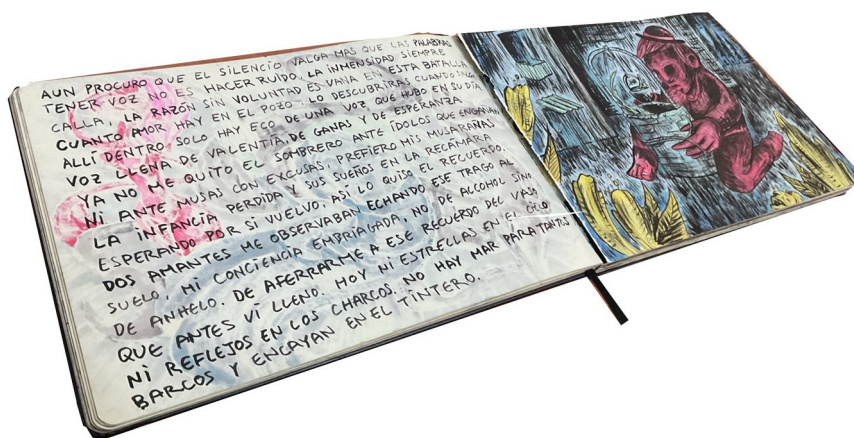 AUN PROCURO QUE EL SILENCIO VALGA MAS QUE LAS PALABRAS
TENER VOZ NO ES HACER RUIDO. LA INMENSIDAD SIEMPRE
CALLA, LA RAZÓN SIN VOLUNTAD ES VANA EN ESTA BATALLA
CUANTO AMOR HAY EN EL POZO LO DESCUBRIRAS CUANDO
ALLÍ DENTRO SOLO HAY ECO DE UNA VOZ QUE HUBO EN SU DÍA,
VOZ LLENA DE VALENTIA, DE GANAS Y DE ESPERANZA
YA NO ME QUITO EL SOMBRERO ANTE ÍDOLOS QUE ENGAÑAN
NI ANTE MUSAS CON EXCUSAS, PREFIERO MIS MUSARAÑAS
LA INFANCIA PERDIDA Y SUS SUEÑOS EN LA RECÁMARA
ESPERANDO POR SI VUELVO. ASÍ LO QUISO EL RECUERDO.
DOS AMANTES ME OBSERVABAN ECHANDO ESE TRAGO AL
SUELO, MI CONCIENCIA EMBRIAGADA, NO DE ALCOHOL SINO
DE ANHELO. DE AFERRARME A ESE RECUERDO DEL VASO
QUE ANTES VÍ LLENO. HOY NI ESTRELLAS EN EL CIELO
NI REFLEJOS EN LOS CHARCOS. NO HAY MAR PARA TANTOS
BARCOS Y ENCAYAN EN EL TINTERO.